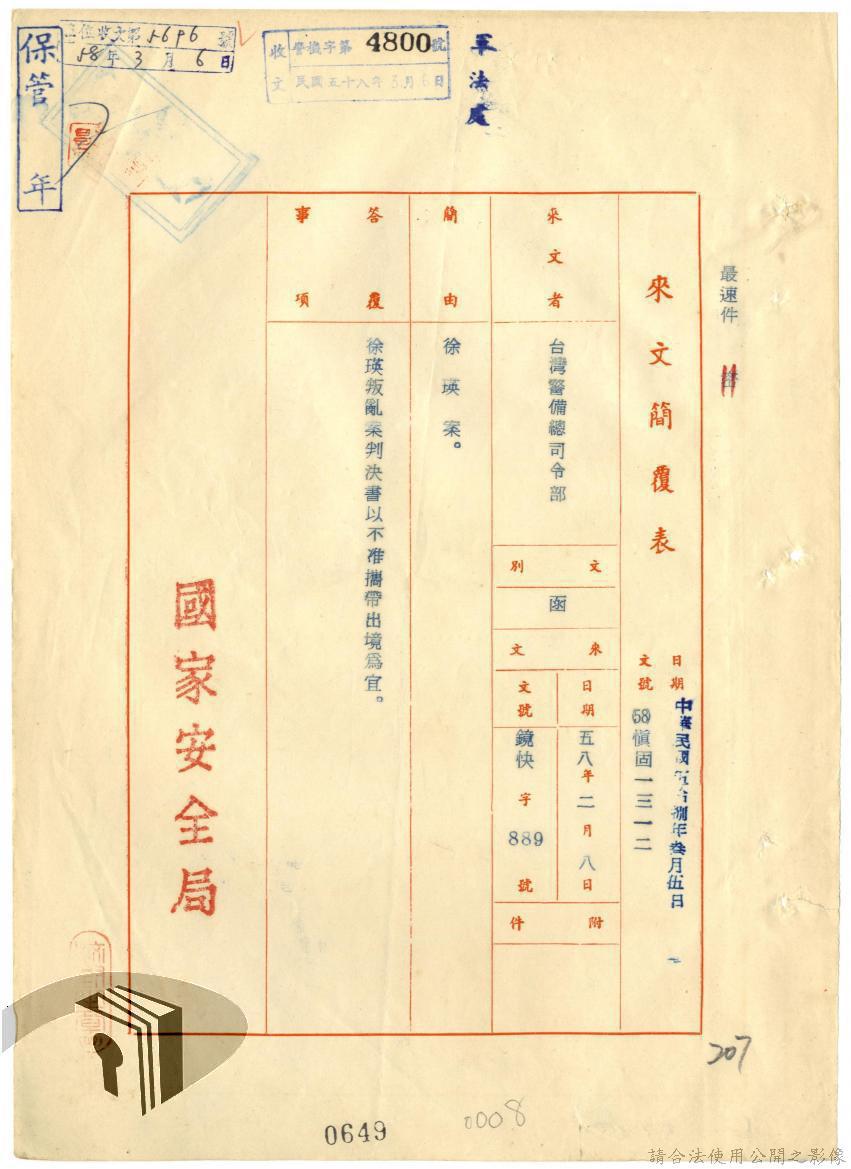 保管 年
主位收文第5696號
58年3月6日
收文
警機字第4800號
民國五十八年3月6日
軍法處
最速件
來文簡覆表
日期 中華民國伍拾捌年叁月伍日
文號 (58)愼固一三一二
來文者
台灣警備總司令部
文別
函
來文
日期
五八年二月八日
文號
鏡快字889號
附件
簡由
徐瑛案。
答覆事項
徐瑛叛亂案判決書以不准攜帶出境為宜。
國家安全局
207
0649
0008
請合法使用公開之影像